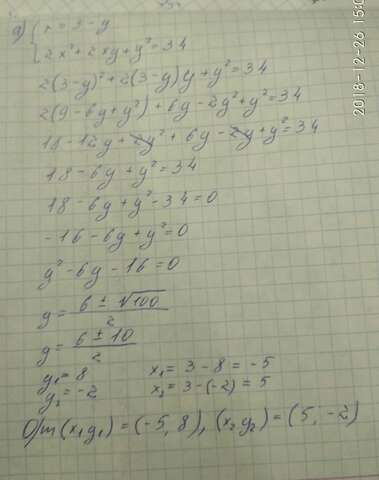 а) { x = 3 - y
2x² + 2xy + y² = 34
2(3-y)² + 2(3-y)y + y² = 34
2(9 - 6y + y²) + 6y - 2y² + y² = 34
18 - 12y + 2y² + 6y - 2y² + y² = 34
18 - 6y + y² = 34
18 - 6y + y² - 34 = 0
-16 - 6y + y² = 0
y² - 6y - 16 = 0
y = (6 ± √100) / 2
y = (6 ± 10) / 2
y₁ = 8 x₁ = 3 - 8 = -5
y₂ = -2 x₂ = 3 - (-2) = 5
От (x₁ y₁) = (-5, 8), (x₂ y₂) = (5, -2)
2018-12-26 15:0